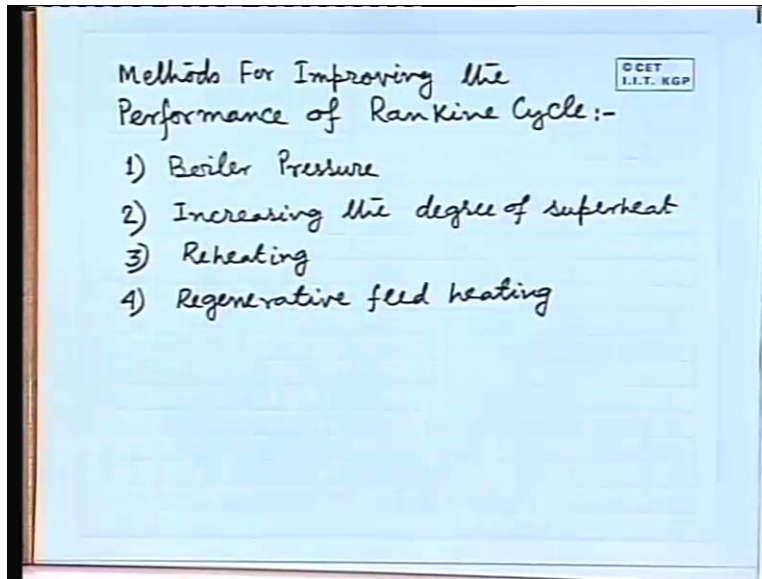 Methods For Improving the
©CET
I.I.T. KGP
Performance of Rankine Cycle:-
1) Boiler Pressure
2) Increasing the degree of superheat
3) Reheating
4) Regenerative feed heating